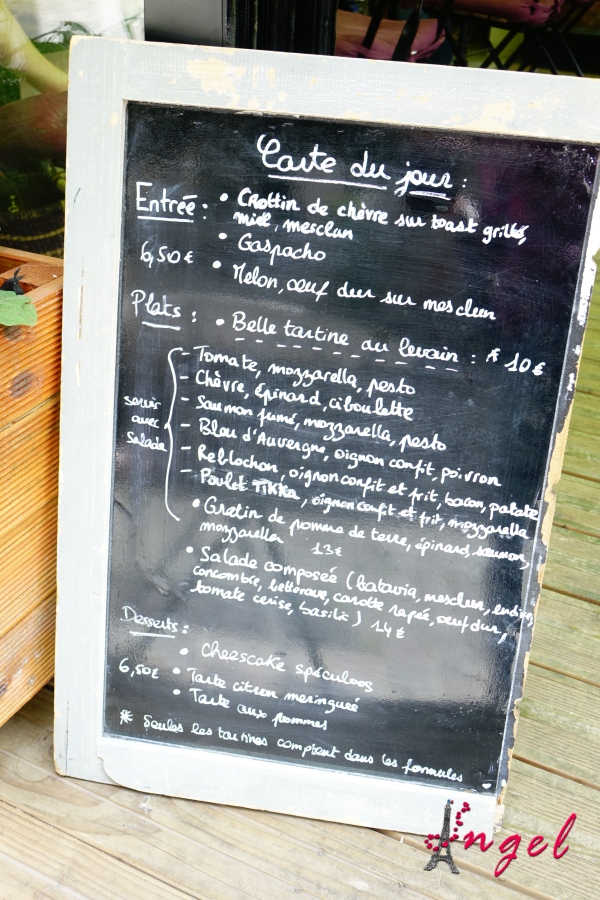 Carte du jour :
Entrée : • Crottin de chèvre sur toast grillé,
miel, mesclun
6,50 € • Gaspacho
• Melon, œuf dur sur mesclun
Plats : • Belle tartine au levain : * 10 €
- Tomate, mozzarella, pesto
- Chèvre, épinard, ciboulette
- Saumon fumé, mozzarella, pesto
- Bleu d'Auvergne, oignon confit, poivron
- Reblochon, oignon confit et frit, bacon, patate
- Poulet TIKKA, oignon confit et frit, mozzarella
servir
avec
salade
• Gratin de pomme de terre, épinard, saumon,
mozzarella 13€
• Salade composée (batavia, mesclun, endive,
concombre, betterave, carotte rapée, œuf dur,
tomate cerise, basilic) 14 €
Desserts :
• cheescake spéculoos
6,50€ • Tarte citron meringuée
• Tarte aux pommes
* Seules les tartines comptent dans les formules
Angel